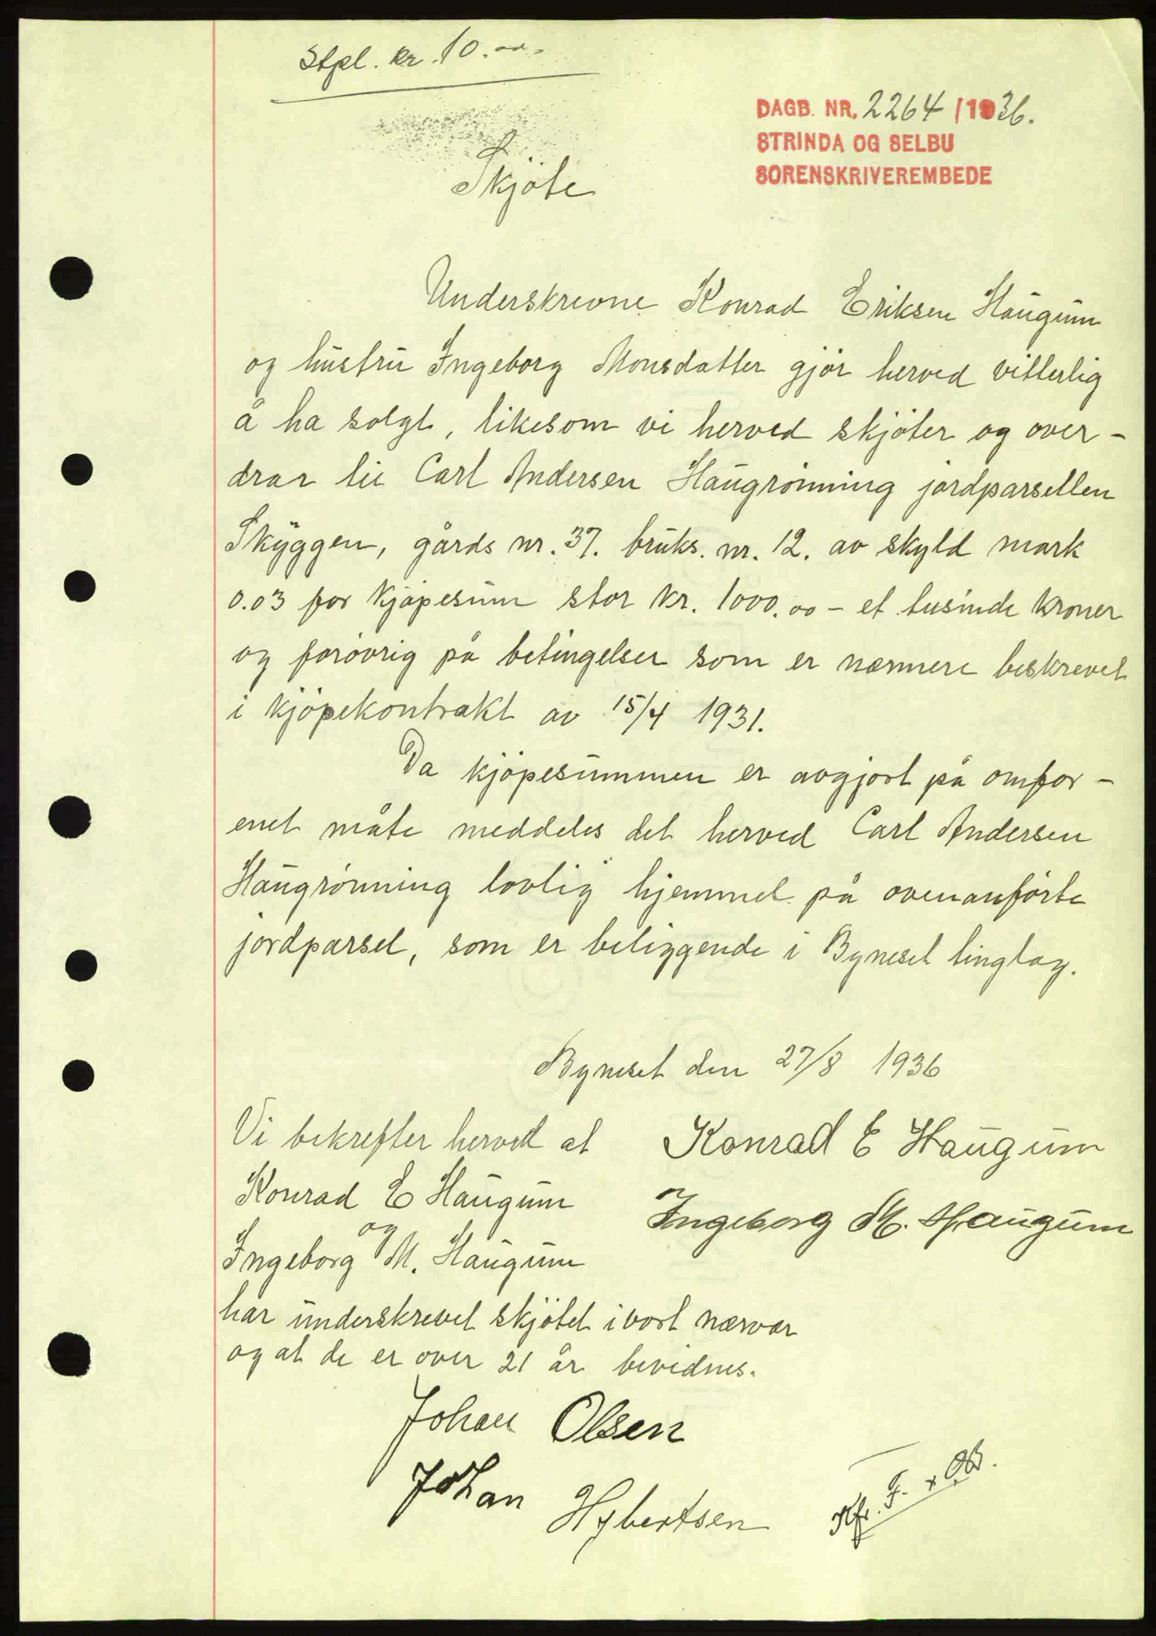 Stpl. kr. 10.00.
DAGB. NR. 2264 / 1936.
STRINDA OG SELBU
SORENSKRIVEREMBEDE
Skjöte
Underskrevne Konrad Eriksen Haugum
og hustru Ingeborg Monsdatter gjör herved vitterlig
å ha solgt, likesom vi herved skjöter og over-
drar til Carl Andersen Haugrönning jordparsellen
Skyggen, gårds nr. 37. bruks. nr. 12. av skyld mark
0.03 for kjöpesum stor kr. 1000.00 - et tusinde kroner
og forövrig på betingelser som er nærmere beskrevet
i kjöpekontrakt av 15/4 1931.
Da kjöpesummen er avgjort på omfor-
enet måte meddeles det herved Carl Andersen
Haugrönning lovlig hjemmel på ovenanförte
jordparsel, som er beliggende i Byneset tinglag.
Byneset den 27/8 1936
Konrad E Haugum
Ingeborg M. Haugum
Vi bekrefter herved at
Konrad E Haugum
og
Ingeborg M. Haugum
har underskrevet skjötet i vort nærvær
og at de er over 21 år bevidnes.
Johan Olsen
Johan Hybertsen